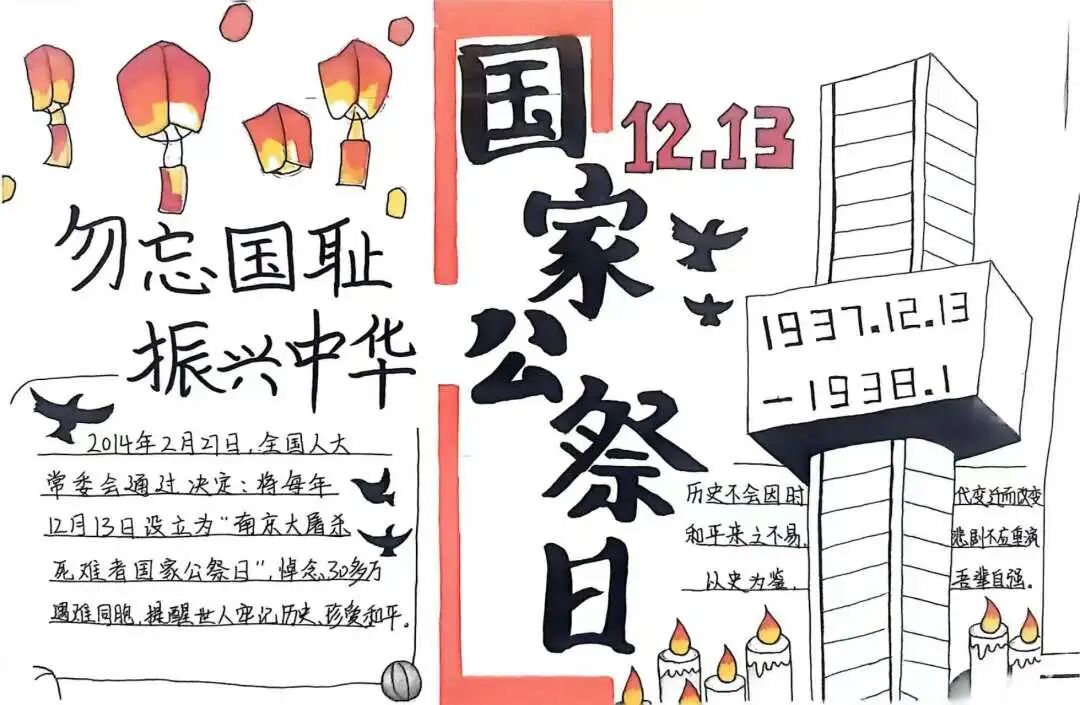 勿忘国耻
振兴中华
2014年2月27日,全国人大
常委会通过决定:将每年
12月13日设立为“南京大屠杀
死难者国家公祭日”,悼念30多万
遇难同胞,提醒世人牢记历史、珍爱和平。
国家公祭日
12.13
1937.12.13
-1938.1
历史不会因时代变迁而改变
和平来之不易,悲剧不应重演
以史为鉴,吾辈自强。